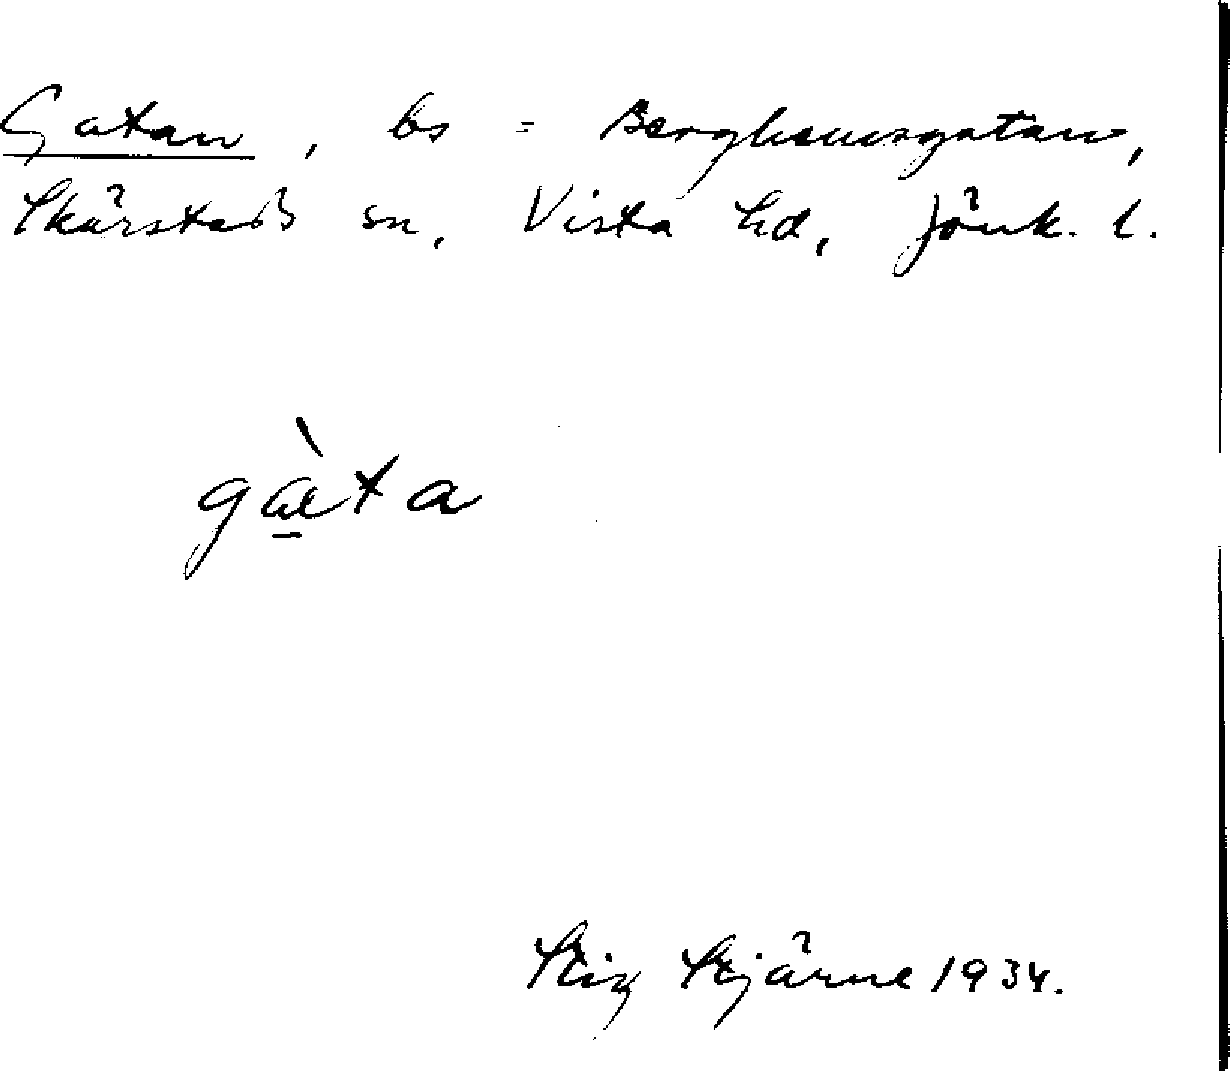 Gatan, bs = Berghemsgatan,
Skärstads sn, Vista hd, Jönk. l.
gàta
Stig Stjärne 1934.